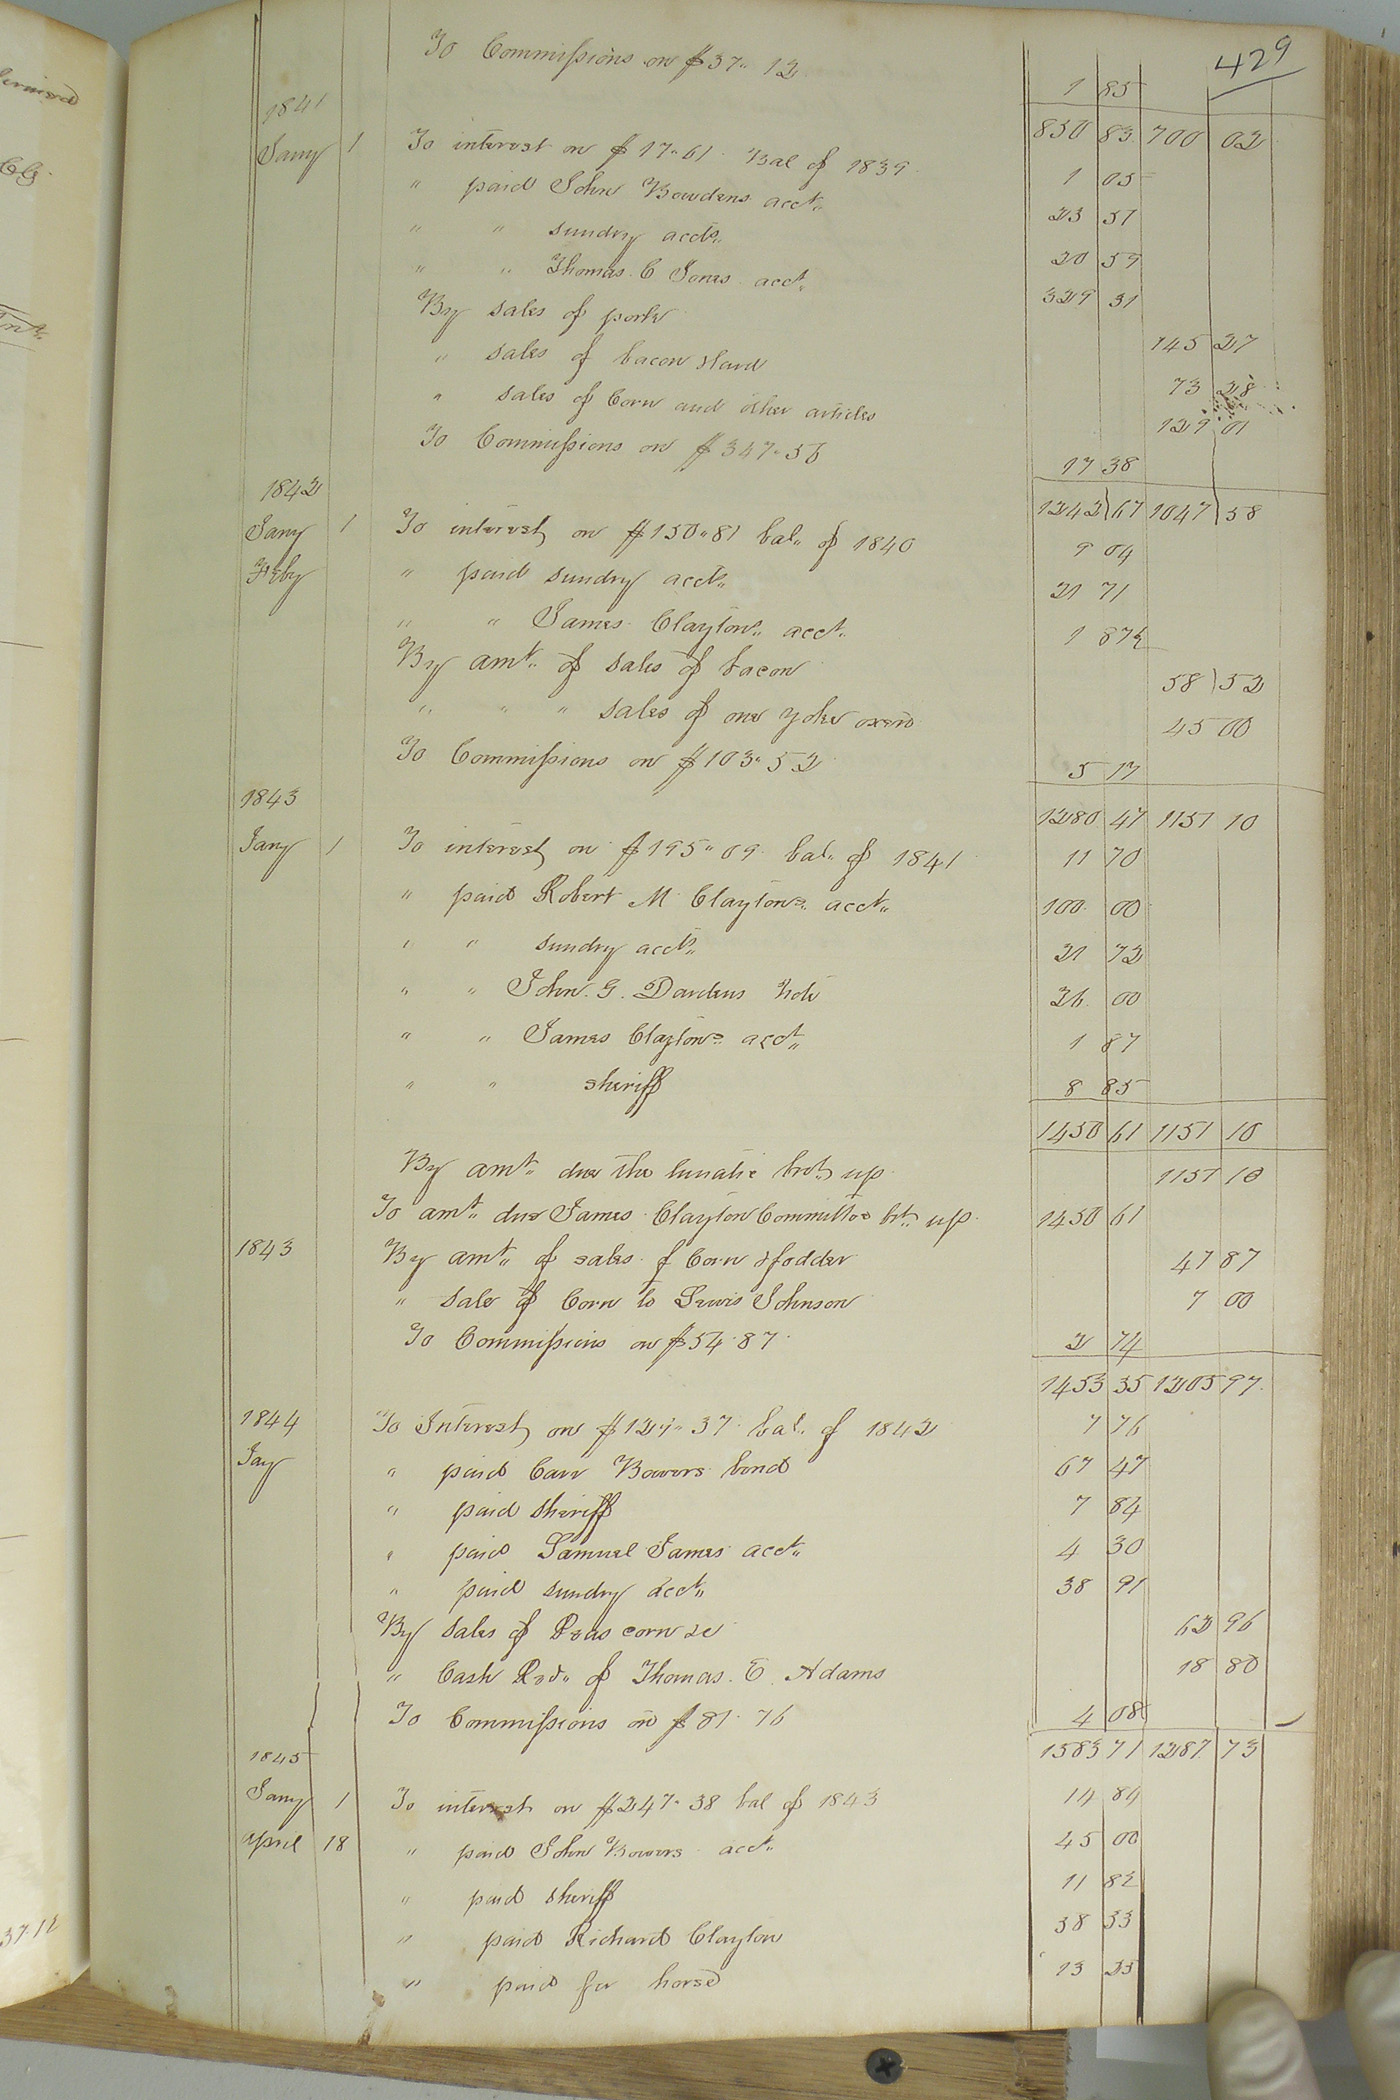 429
To Commissions on $37.. 12 1 85
1841 850 83 700 02
Jany 1 To interest on $17.. 61 Bal of 1839 1 05
" paid John Bowdens acct.. 23 51
" " sundry accts.. 20 59
" " Thomas C Jones acct.. 329 31
By sales of pork 145 27
" sales of bacon & lard 73 28
" sales of Corn and other articles 129 01
To Commissions on $347.. 56 17 38
1842 1242 67 1047 58
Jany 1 To interest on $150..81 bal.. of 1840 9 04
Feby " paid sundry accts.. 21 71
" " James Claytons.. acct.. 1 87½
By amt.. of sales of bacon 58 52
" " " sales of one yoke oxen 45 00
To Commissions on $103.. 52 5 17
1843 1280 47 1151 10
Jany 1 To interest on $195.. 09 bal.. of 1841 11 70
" paid Robert M Claytons.. acct.. 100 00
" " sundry accts.. 21 72
" " John. G. Dardens Note 26 00
" " James Claytons acct.. 1 87
" " sheriff 8 85
1450 61 1151 10
By amt.. due the lunatic brot.. up 1151 10
To amt.. due James Clayton Committee bt.. up 1450 61
1843 By amt.. of sales of Corn & fodder 47 87
" sale of Corn to Lewis Johnson 7 00
To Commissions on $54. 87 2 74
1453 35 1205 97
1844 To Interest on $129.. 37 bal.. of 1842 7 76
Jay " paid Carr Bowers bond 67 47
" paid sheriff 7 84
" paid Samuel James acct.. 4 30
" paid sundry acct.. 38 91
By sales of Peas corn &c 62 96
" Cash Recd.. of Thomas. E. Adams 18 80
To Commissions on $81. 76 4 08
1845 1583 71 1287 73
Jany 1 To interest on $247.. 38 bal of 1843 14 84
april 18 " paid John Bowers acct.. 45 00
" paid sheriff 11 82
" paid Richard Clayton 38 33
" paid for horse 13 25
37.12